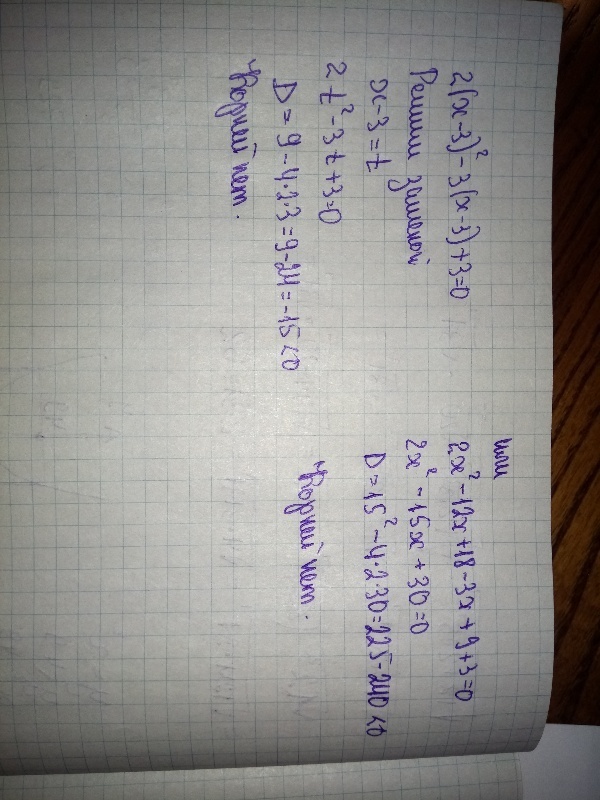 2(x-3)²-3(x-3)+3=0
Решим заменой
x-3=t
2t²-3t+3=0
D=9-4·2·3=9-24=-15<0
Корней нет.
или
2x²-12x+18-3x+9+3=0
2x²-15x+30=0
D=15²-4·2·30=225-240<0
Корней нет.